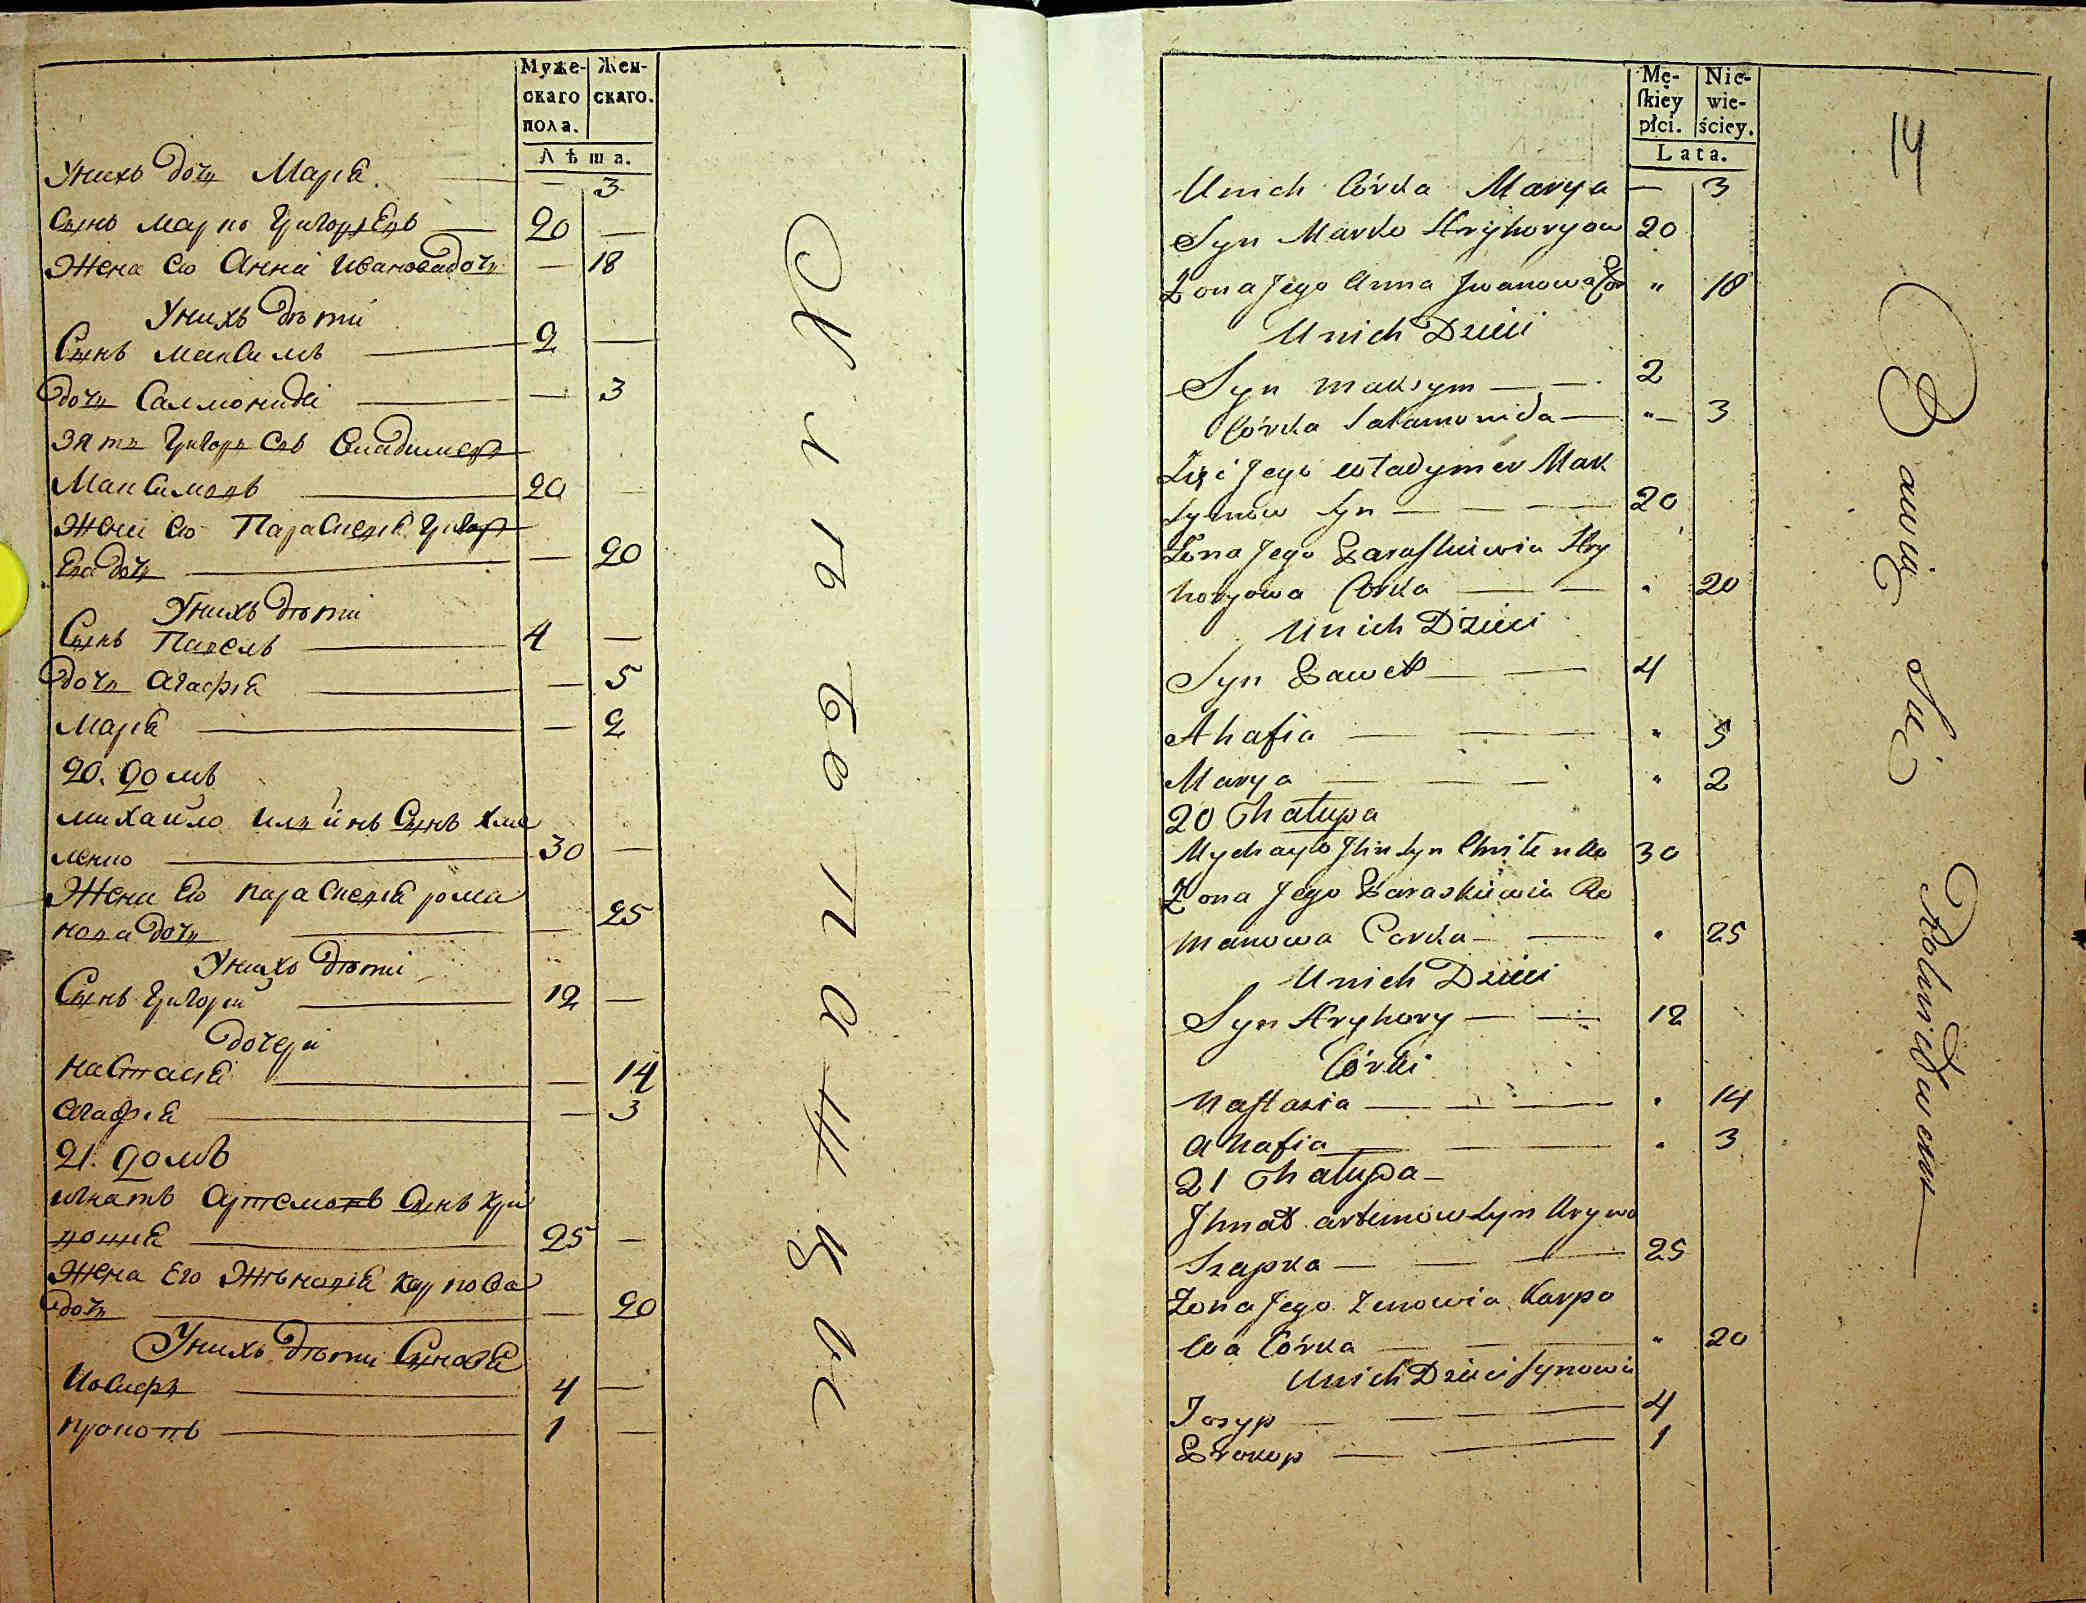 Муже-
скаго
пола.
Жен-
скаго.
Лѣта.
Унихъ дочь Марія 3
Сынъ Марко Григорьевъ 20
Жена его Анна Ивановадочь 18
Унихъ дѣти
Сынъ Максимъ 2
дочь Саламонида 3
зять Григорьевъ Владимеръ
Максимовъ 20
Жена его Параскевія Григорь
Ева дочь 20
Унихъ дѣти
Сынъ Павелъ 4
дочь Агафія 5
Марія 2
20. домъ
Михайло Ильинъ Сынъ Хме
ленко 30
Жена Его Параскевія рома
нова дочь 25
Унихъ дѣти
Сынъ Григорій 12
дочери
Настасія 14
Агафія 3
21. домъ
Игнатъ Артемовъ Сынъ Кри
вошапка 25
Жена Его Зѣновія Карпова
дочь 20
Унихъ дѣти Сыновья
Иосифъ 4
Прокопъ 1
Хлѣбопашцы
Mę-
skiéy
płci.
Nie-
wie-
ściey.
Lata.
Unich Córka Marya — 3
Syn Marko Hryhoryow 20
Żona Jego Anna Jwanowa Cór " 18
Unich Dzieci
Syn Maksym — — 2
Córka Salamonida — "— 3
Zięć Jego Władymer Mak
symów Syn — — — 20
Żona Jego Paraskiewia Hry
horyowa Corka — — " 20
Unich Dzieci
Syn Paweł — — 4
Ahafia — — — " 5
Marya — — — " 2
20 Chałupa
Mychayło Jlin Syn Chmilenko 30
Żona Jego Paraskiewia Ro
manowa Corka — — " 25
Unich Dzieci
Syn Hryhory — — 12
Córki
Nastazia — — — " 14
Ahafia — — " 3
21 Chałupa —
Jhnat Artemow Syn Krywo
Szapka — — — 25
Żona Jego Zenowia Karpo
wa Córka — — " 20
Unich Dzieci Synowie
Josyp — — — 4
Prokop — — 1
14
Bawią się Rolnictwem —